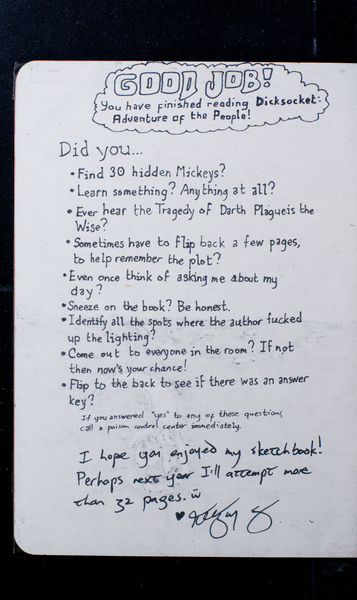 GOOD JOB!
You have finished reading Dicksocket:
Adventure of the People!
Did you...
• Find 30 hidden Mickeys?
• Learn something? Anything at all?
• Ever hear the Tragedy of Darth Plagueis the
Wise?
• Sometimes have to flip back a few pages,
to help remember the plot?
• Even once think of asking me about my
day?
• Sneeze on the book? Be honest.
• Identify all the spots where the author fucked
up the lighting?
• Come out to everyone in the room? If not
then now's your chance!
• Flip to the back to see if there was an answer
key?
If you answered "yes" to any of these questions,
call a poison control center immediately.
I hope you enjoyed my sketchbook!
Perhaps next year I'll attempt more
than 32 pages.